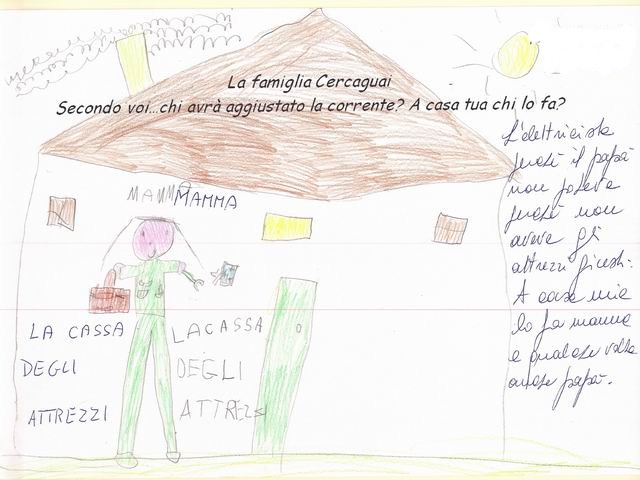 La famiglia Cercaguai
Secondo voi...chi avrà aggiustato la corrente? A casa tua chi lo fa?
MAMMA MAMMA
LA CASSA
DEGLI
ATTREZZI
LA CASSA
DEGLI
ATTREZZI
L'elettricista
perché il papà
non poteva
perché non
aveva gli
attrezzi giusti.
A casa mia
lo fa mamma
e qualche volta
anche papà.